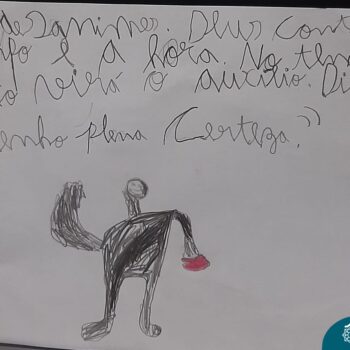 desanimes. Deus cont
po e a hora. No tem
io virá o auxilio. Di
enho plena Certeza."